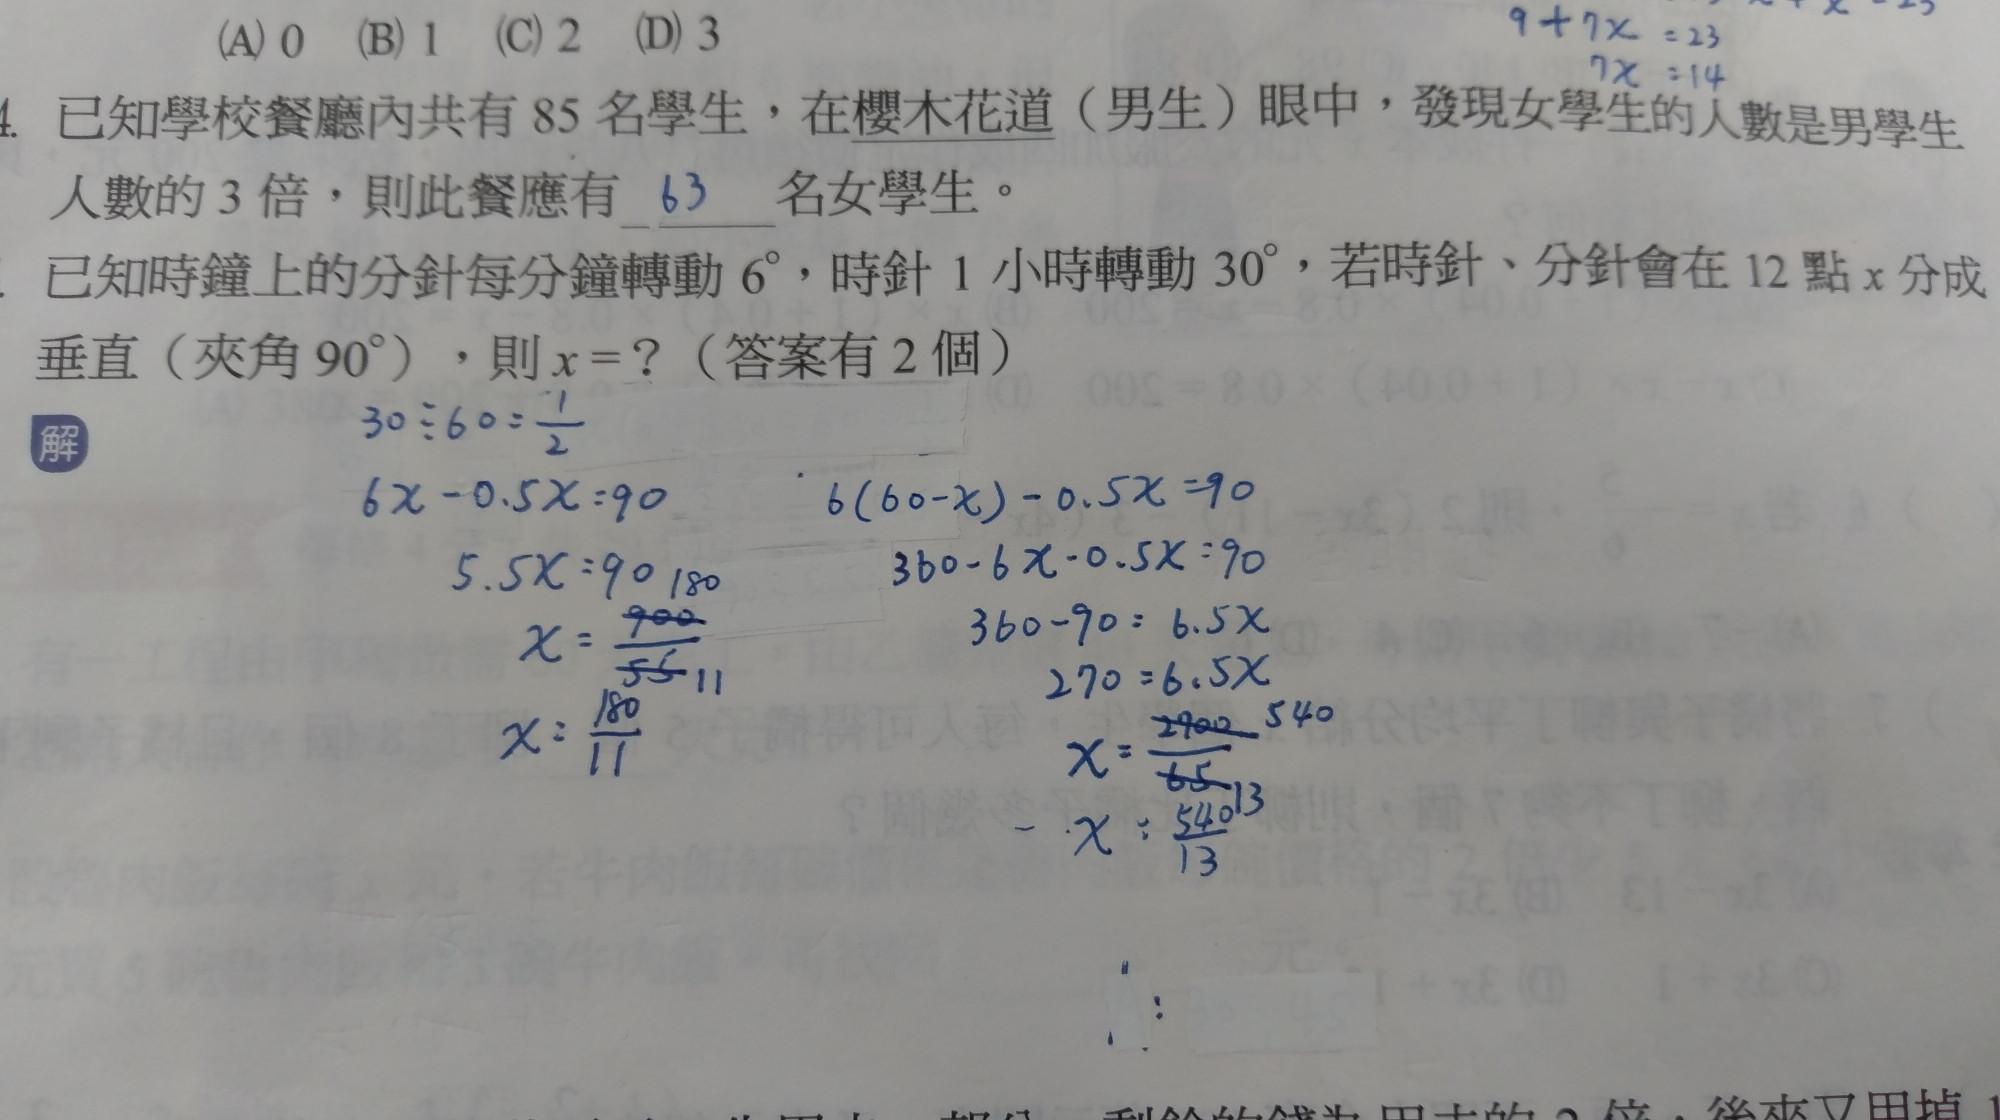 (A) 0 (B) 1 (C) 2 (D) 3
9+7x =23
7x =14
4. 已知學校餐廳內共有 85 名學生，在櫻木花道（男生）眼中，發現女學生的人數是男學生
人數的 3 倍，則此餐應有 63 名女學生。
已知時鐘上的分針每分鐘轉動 6°，時針 1 小時轉動 30°，若時針、分針會在 12 點 x 分成
垂直（夾角 90°），則 x = ？（答案有 2 個）
解
30÷60=1/2
6x-0.5x=90
5.5x=90
x=900/55 180 11
x=180/11
6(60-x)-0.5x=90
360-6x-0.5x=90
360-90=6.5x
270=6.5x
x=2700/65 540 13
x=540/13